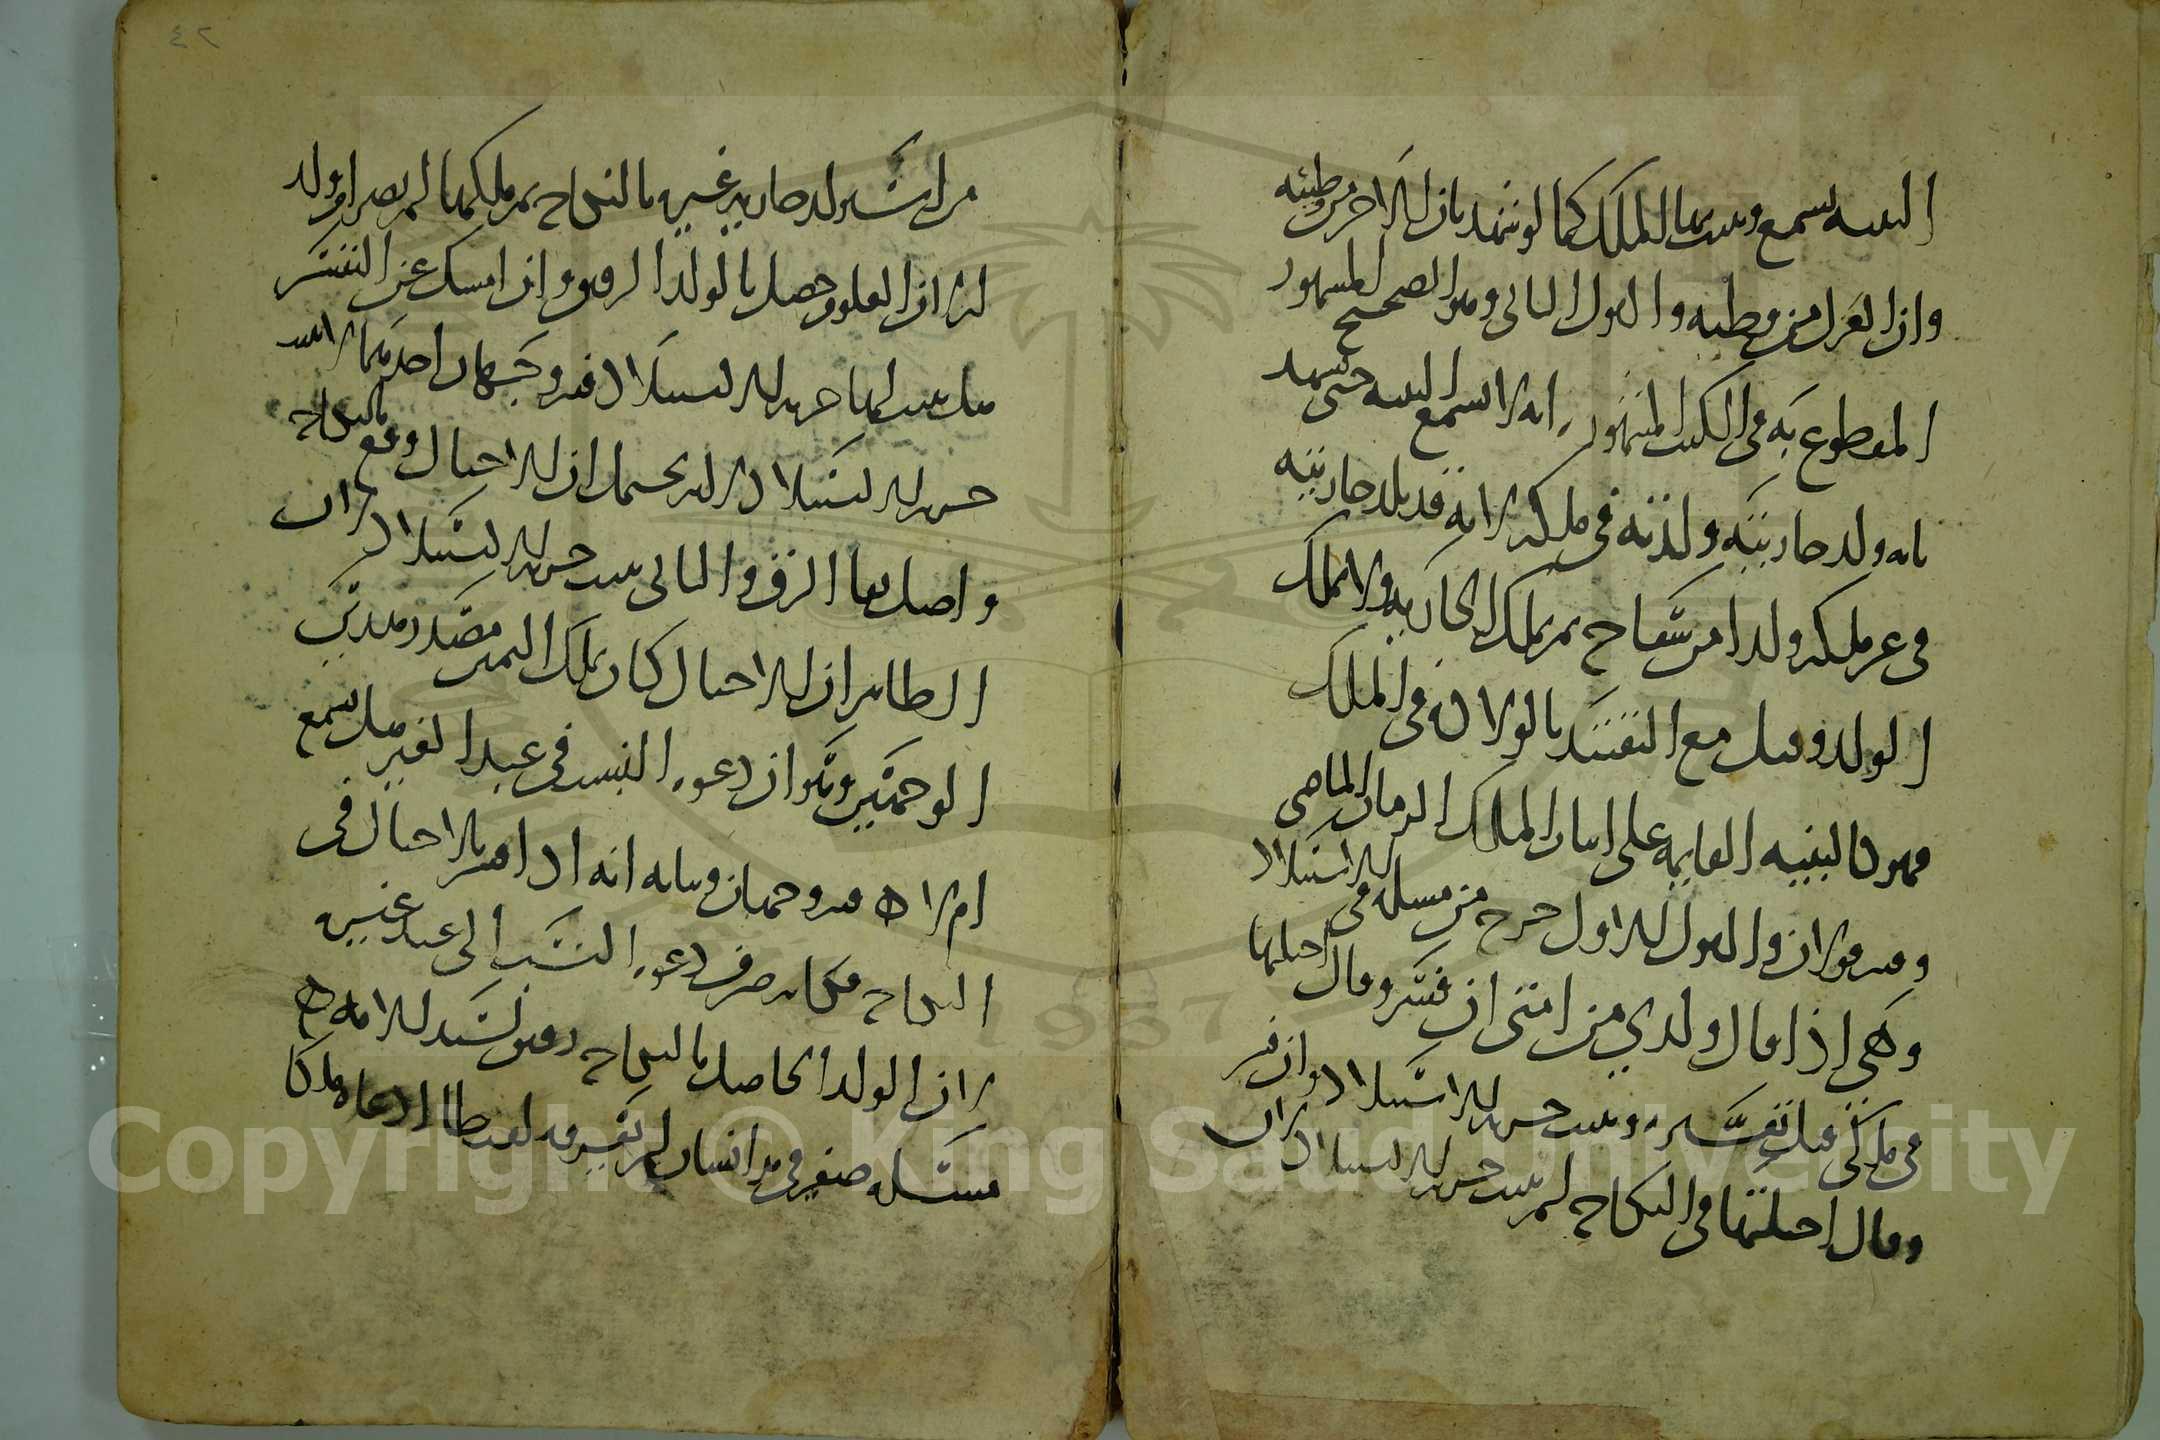 البينه تسمع ويثبت بها الملك كما لو شهد بان هذا الاخر من وطيه
وان الغزل من قطنه والقول الثاني وهو الصحيح المشهور
المقطوع به في الكتب المشهور انه لا تسمع البينه حتى تشهد
بانه ولد جاريتيه ولدته في ملكه لانه قد تلد جاريتيه
في غير ملكه ولدا من سفاح ثم يملك الجاريه ولا يملك
الولد وقيل مع التقييد بالولاده في الملك
فهو كالبينه القايمه على اثبات الملك الزمان الماضي
وفيه قولان والقول الاول خرج من مسله في الاستيلاد
وهي اذا قال ولدي من امتي ان فسر وقال احبلتها
في ملكي قبل تفسيره ويثبت حريه الاستيلاد وان فسر
وقال احبلتها في النكاح لم يثبت حريه الاستيلاد لان
من استولد جاريه غيره بالنكاح ثم ملكها لم تصر ام ولد
له لان العلوق حصل بالولد الرقيق وان امسك عن التفسير
هل يثبت لها حريه الاستيلاد فيه وجهان احدهما لا يثبت
حريه الاستيلاد لانه يحتمل ان الاحبال وقع بالنكاح
واصل بقا الرق والثاني يثبت حريه الاستيلاد لان
الظاهر ان الاحبال كان بملك اليمين
الوجهين وهو ان دعوه النسب في عبد الغير هل تسمع
ام لا فيه وجهان وبيانه انه اذا اقر بالاحبال في
النكاح فكانه صرف دعوه النسب الى عبد غيره
لان الولد الحاصل بالنكاح رقيق لسيد الامه
مسله صغير في يد انسان لم يعرف منه لفظا ادعاه ملكا
٤٢
Copyright © King Saud University
1957